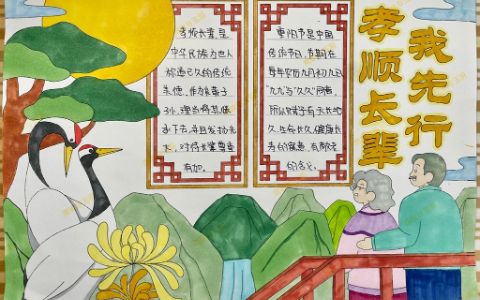 孝顺长辈
我先行
孝顺长辈是
中华民族为世人
称道已久的传统
美德，作为子
孙，理当将其继
承下去，并且发扬光
大，对待长辈尊重
有加。
重阳节是中国
传统节日，节期在
每年农历九月初九日
“九九”与“久久”同音，
所以赋予有天长地
久、生命长久、健康长
寿的寓意，有敬老
的含义。